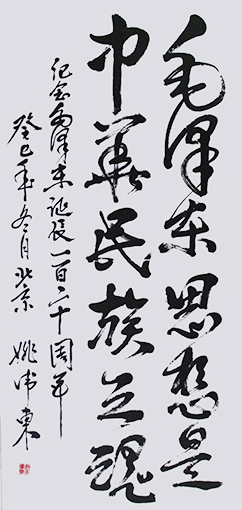 毛泽东思想是
中华民族之魂
纪念毛泽东诞辰一百二十周年
癸巳年冬月北京 姚伟东